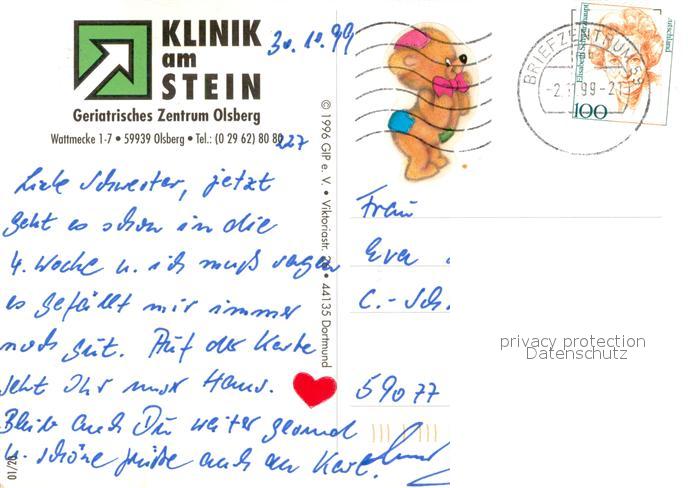 KLINIK
am
STEIN
Geriatrisches Zentrum Olsberg
Wattmecke 1-7 • 59939 Olsberg • Tel.: (0 29 62) 80 8
227
30.10.99
Liebe Schwester, jetzt
geht es schon in die
4. Woche u. ich muß sagen
es gefällt mir immer
noch gut. Auf der Karte
seht Ihr unser Haus.
Bleib auch Du weiter gesund
u. schöne Grüße auch an Karl.
01/20
© 1996 GIP e. V. • Viktoriastr. • 44135 Dortmund
BRIEFZENTRUM 59
-2.1 99-21
Elisabeth Schwarzhaupt
Deutschland
100
Frau
Eva
C.-Sch.
59077
privacy protection
Datenschutz